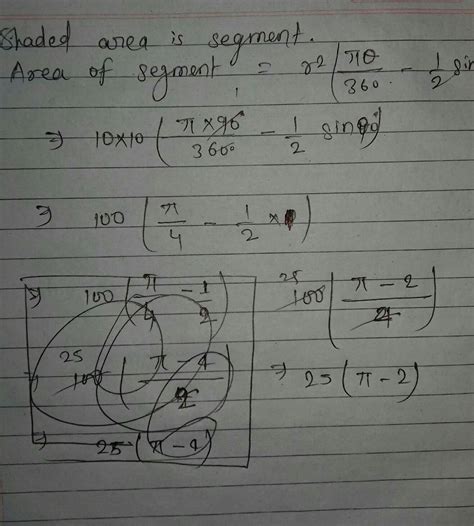 Shaded area is segment.
Area of segment = r² ( πθ/360 - 1/2 sin
⇒ 10×10 ( π×90/360° - 1/2 sin90°)
⇒ 100 ( π/4 - 1/2 ×1 )
⇒ 100 ( π/4 - 1/2 ) 25 100 ( π-2/4 )
25 100 ( π-4/2 ) ⇒ 25 (π-2)
⇒ 25 (π-4)